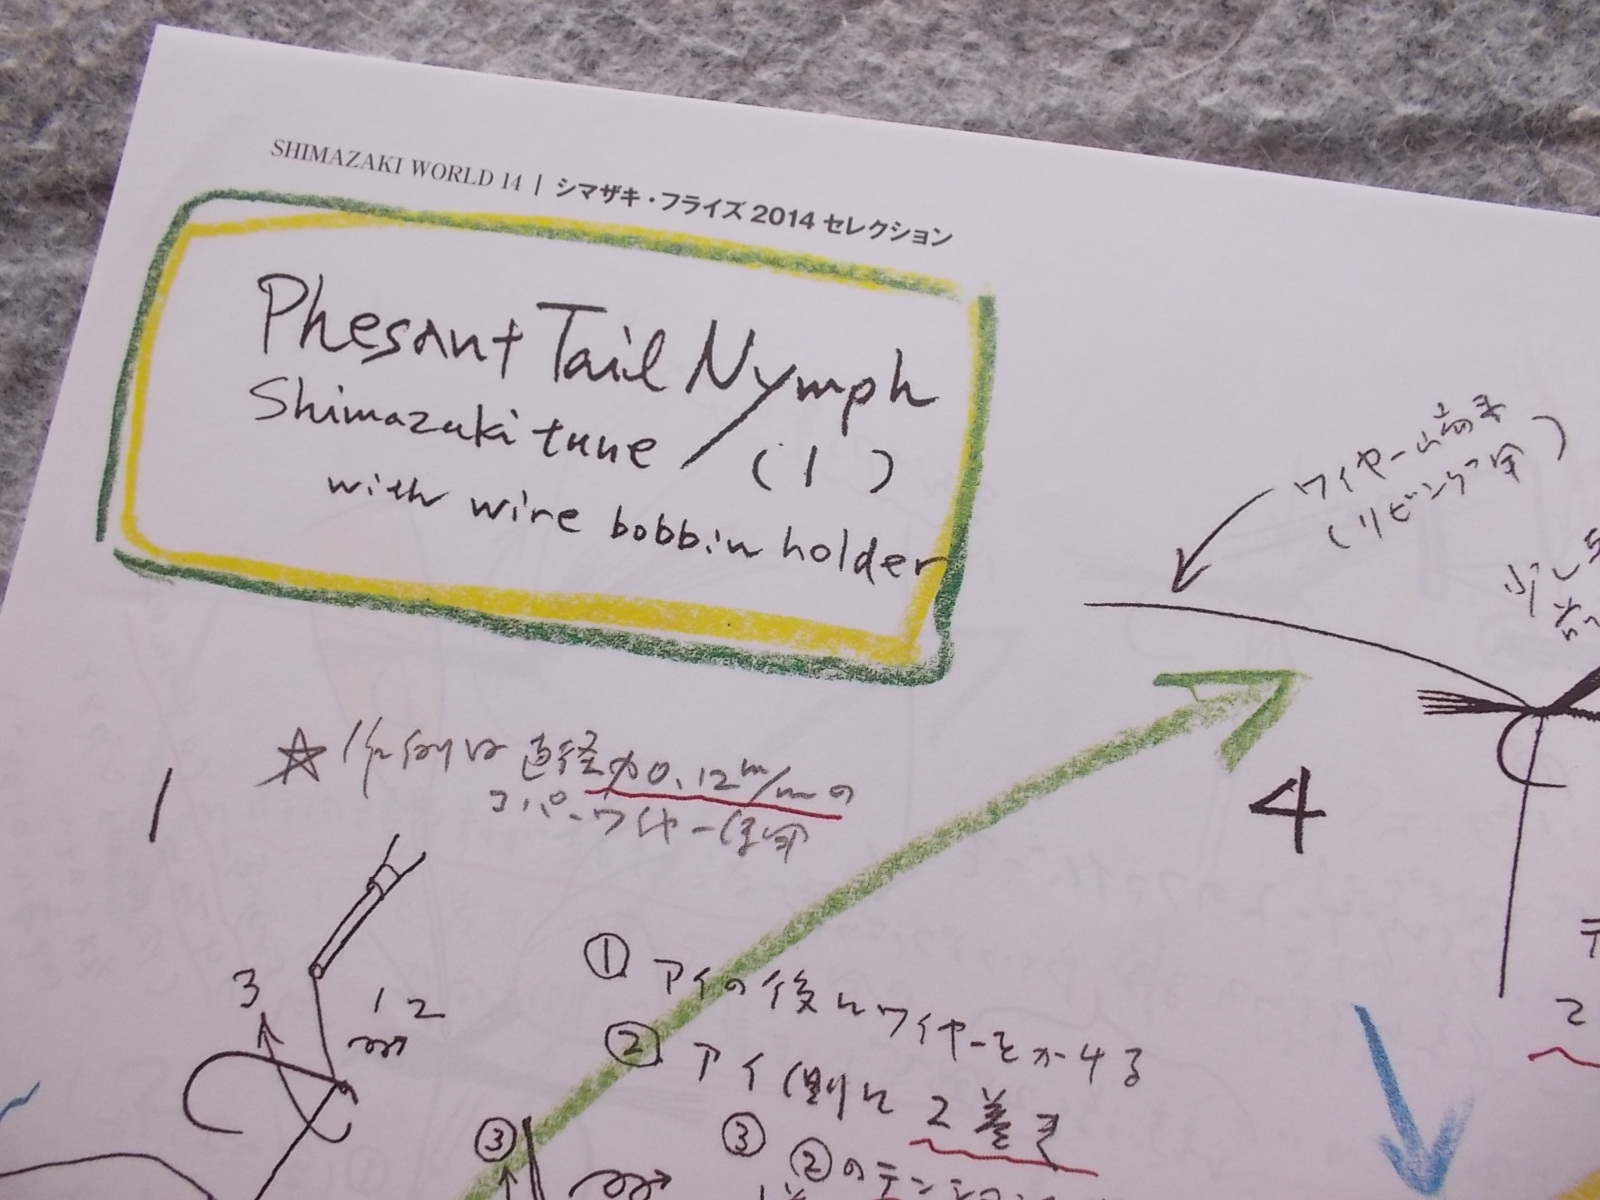 SHIMAZAKI WORLD 14 | シマザキ・フライズ 2014 セレクション
Phesant Tail Nymph
Shimazaki tune / (1)
with wire bobbin holder
ワイヤー
(リビング用)
少し
☆ 作例は 直径が0.12m/mの
コパーワイヤー使用
1
4
3
1 2
① アイの後にワイヤーをかける
② アイ側に 2巻き
③ ②のテンション
③
2